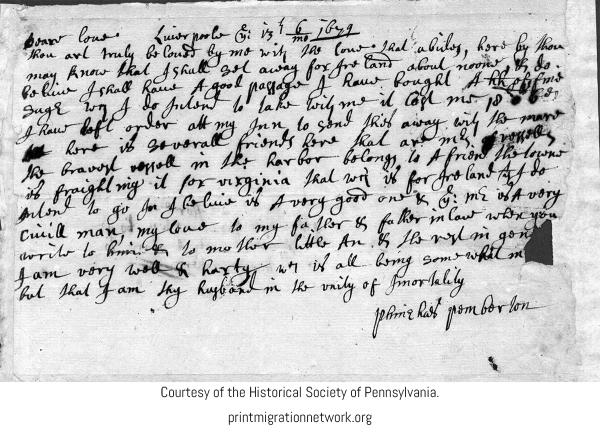 Deare love Liverpoole ye: 13t 6 mo 1679
thou art truly beloved by me with the love that abides, here by thou
may know that I shall set away for Ireland about noone, & do
beliue I shall haue A good passage I haue bought A
wch I do Intend to take with me it Cost me 18
I haue left order att my Inn to send this away with the mare
here is severall friends here that are vessells
the bravest vessell in the harbor belongs to A friend the towne
is fraighting it for virginia that wch is for Ireland I do
Intend to go In I beliue is A very good one & ye: is A very
Civill man my love to my father & father in law when you
write to him. & to mother little An & the rest in gen
I am very well & harty wch is all being somewhat in
but that I am thy husband in the unity of Imortality
Phinehas Pemberton
Courtesy of the Historical Society of Pennsylvania.
printmigrationnetwork.org